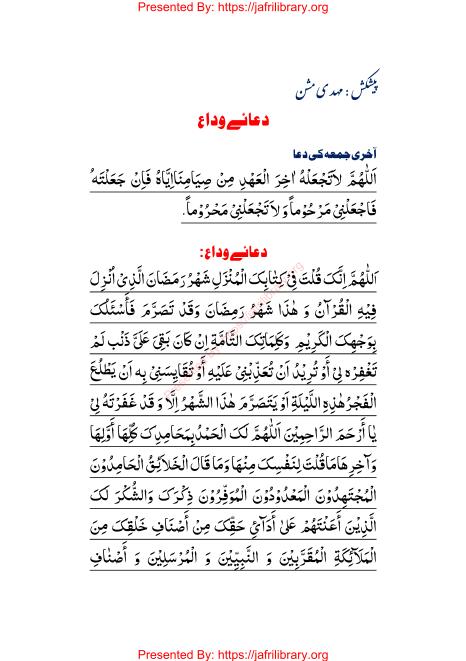 Presented By: https://jafrilibrary.org
پیشکش : مہدی مشن
دعائے وداع
آخری جمعہ کی دعا
اَللّٰهُمَّ لَاتَجْعَلْهُ اٰخِرَ الْعَهْدِ مِنْ صِيَامِنَااِيَّاهُ فَاِنْ جَعَلْتَهُ
فَاجْعَلْنِيْ مَرْحُوْماً وَلَا تَجْعَلْنِيْ مَحْرُوْماً.
دعائے وداع:
اَللّٰهُمَّ اِنَّكَ قُلْتَ فِيْ كِتَابِكَ الْمُنْزَلِ شَهْرُ رَمَضَانَ الَّذِيْ اُنْزِلَ
فِيْهِ الْقُرْآنُ وَ هٰذَا شَهْرُ رَمِضَانَ وَقَدْ تَصَرَّمَ فَأَسْئَلُكَ
بِوَجْهِكَ الْكَرِيْمِ وَكَلِمَاتِكَ التَّامَّةِ اِنْ كَانَ بَقِيَ عَلَيَّ ذَنْب لَمْ
تَغْفِرْه لِيْ أَوْ تُرِيْدُ اَنْ تُعَذِّبَنِيْ عَلَيْهِ أَوْ تُقَايِسَنِيْ بِه اَنْ يَطْلُعَ
الْفَجْرُهٰذِهِ اللَّيْلَةِ اَوْ يَتَصَرَّمَ هٰذَا الشَّهْرُ اِلَّا وَ قَدْ غَفَرْتَهُ لِيْ
يَا أَرْحَمَ الرَّاحِمِيْنَ اَللّٰهُمَّ لَكَ الْحَمْدُ بِمَحَامِدِكَ كُلِّهَا أَوَّلِهَا
وَآخِرِهَامَاقُلْتَ لِنَفْسِكَ مِنْهَاوَمَا قَالَ الْخَلَائِقُ الْحَامِدُوْنَ
الْمُجْتَهِدُوْنَ الْمَعْدُوْدُوْنَ الْمُوَقِّرُوْنَ ذِكْرَكَ وَالشُّكْرَ لَكَ
الَّذِيْنَ أَعَنْتَهُمْ عَلٰى أَدَآئِ حَقِّكَ مِنْ أَصْنَافِ خَلْقِكَ مِنَ
الْمَلَآئِكَةِ الْمُقَرَّبِيْنَ وَ النَّبِيِّيْنَ وَ الْمُرْسَلِيْنَ وَ أَصْنَافِ
Presented By: https://jafrilibrary.org